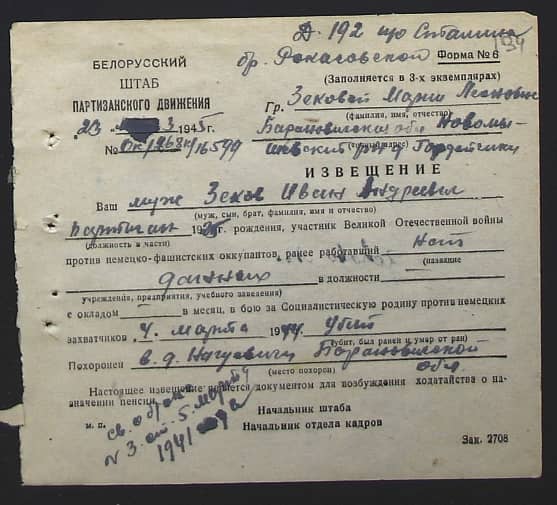 Д. 192 им Сталина
134
бр. Рокасовской Форма № 6
БЕЛОРУССКИЙ
ШТАБ
ПАРТИЗАНСКОГО ДВИЖЕНИЯ
(Заполняется в 3-х экземплярах)
Гр. Зековой Марии
(фамилия, имя, отчество)
23 3 1945 г.
Барановичская обл
№ 16599
ИЗВЕЩЕНИЕ
Ваш муж Зеков Иван Андреевич
(муж, сын, брат, фамилия, имя и отчество)
партизан 19 г. рождения, участник Великой Отечественной войны
(должность в части)
против немецко-фашистских оккупантов, ранее работавший нет
(название
данных в должности
учреждения, предприятия, учебного заведения)
с окладом в месяц, в бою за Социалистическую родину против немецких
захватчиков 4 марта 1944 г. убит
(убит, был ранен и умер от ран)
Похоронен в д. Барановичской
обл.
(место похорон)
Настоящее извещение является документом для возбуждения ходатайства о на-
значении пенсии.
м. п.
Начальник штаба
Начальник отдела кадров
№ 3 от 5 марта
Зак. 2708